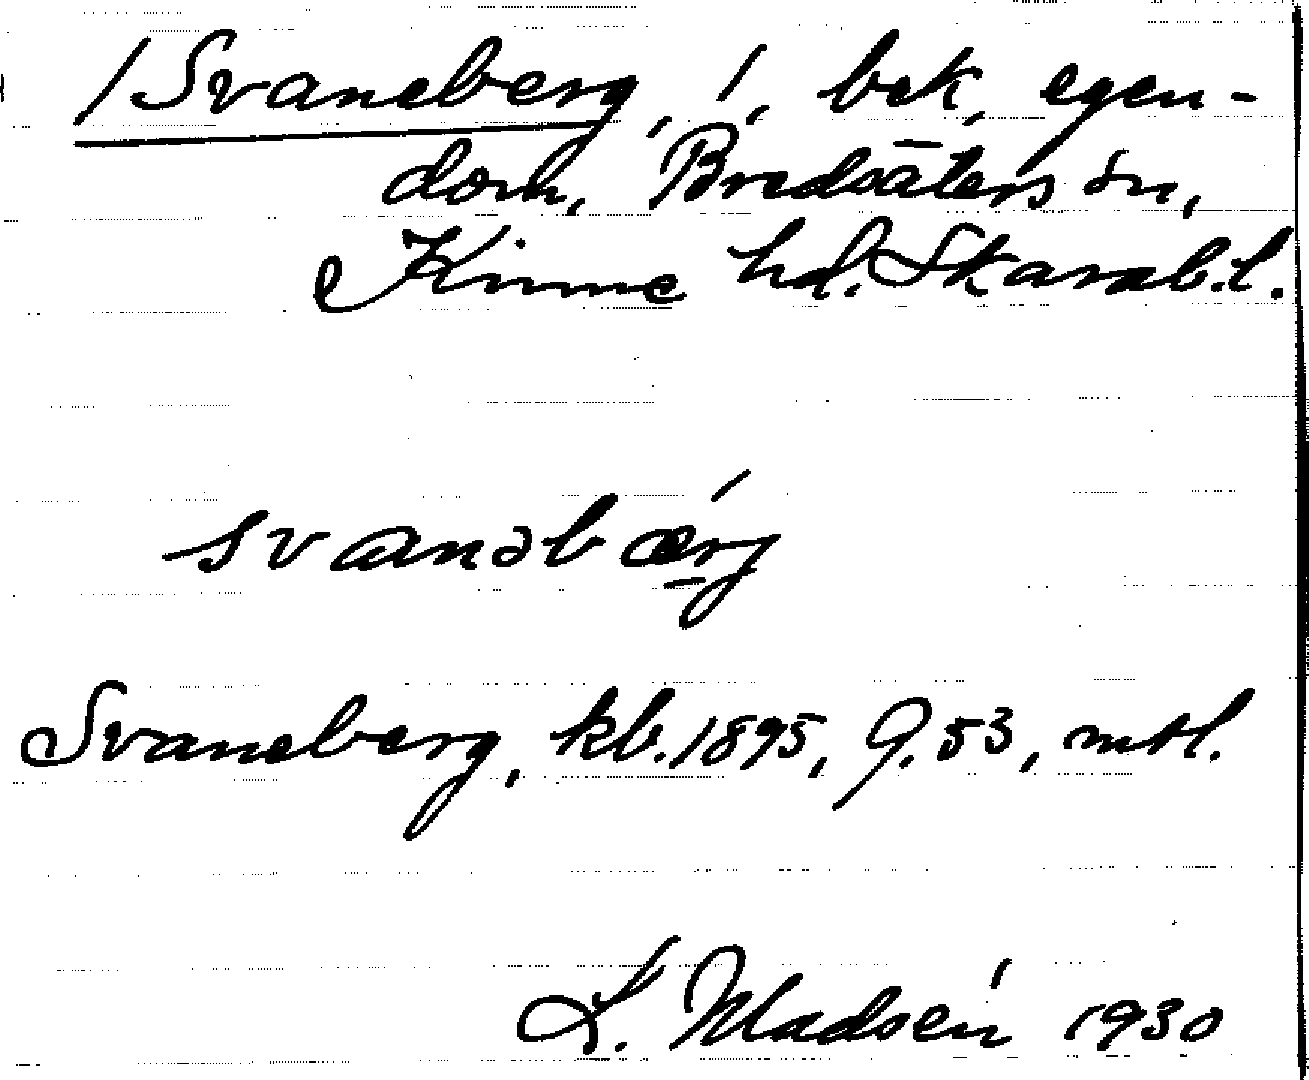 /Svaneberg, /, bek, egen-
dom, Bredsäters sn,
Kinne hd. Skarab.l.
svanəbærg
Svaneberg, kb. 1895, 9.53, mtl.
L. Madsén 1930